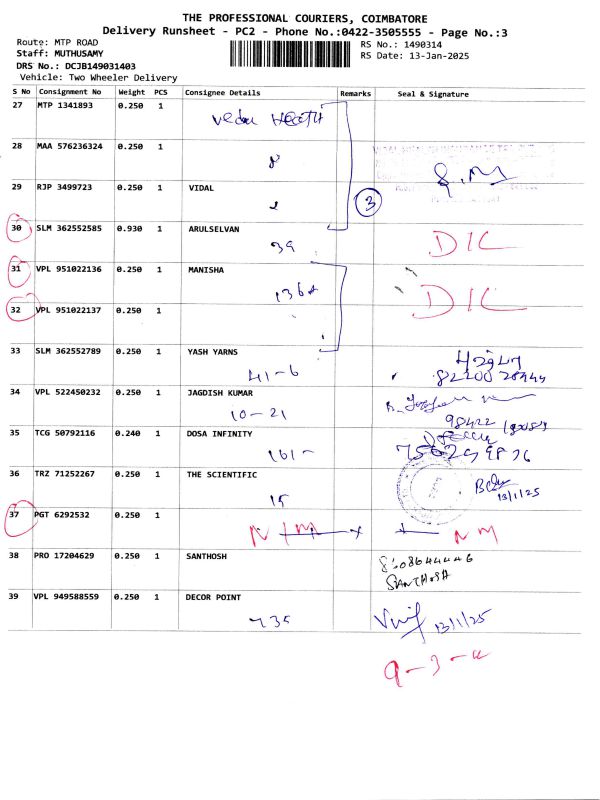 THE PROFESSIONAL COURIERS, COIMBATORE
Delivery Runsheet - PC2 - Phone No.:0422-3505555 - Page No.:3
Route: MTP ROAD
RS No.: 1490314
Staff: MUTHUSAMY
RS Date: 13-Jan-2025
DRS No.: DCJB149031403
Vehicle: Two Wheeler Delivery
S No Consignment No Weight PCS Consignee Details Remarks Seal & Signature
27 MTP 1341893 0.250 1
28 MAA 576236324 0.250 1
8
29 RJP 3499723 0.250 1 VIDAL
3
30 SLM 362552585 0.930 1 ARULSELVAN
39
31 VPL 951022136 0.250 1 MANISHA
32 VPL 951022137 0.250 1
33 SLM 362552789 0.250 1 YASH YARNS
41-6
34 VPL 522450232 0.250 1 JAGDISH KUMAR
10-21
98422
35 TCG 50792116 0.240 1 DOSA INFINITY
161-
36 TRZ 71252267 0.250 1 THE SCIENTIFIC
15
13/1/25
37 PGT 6292532 0.250 1
NM
38 PRO 17204629 0.250 1 SANTHOSH
SANTHOSH
39 VPL 949588559 0.250 1 DECOR POINT
735 13/1/25